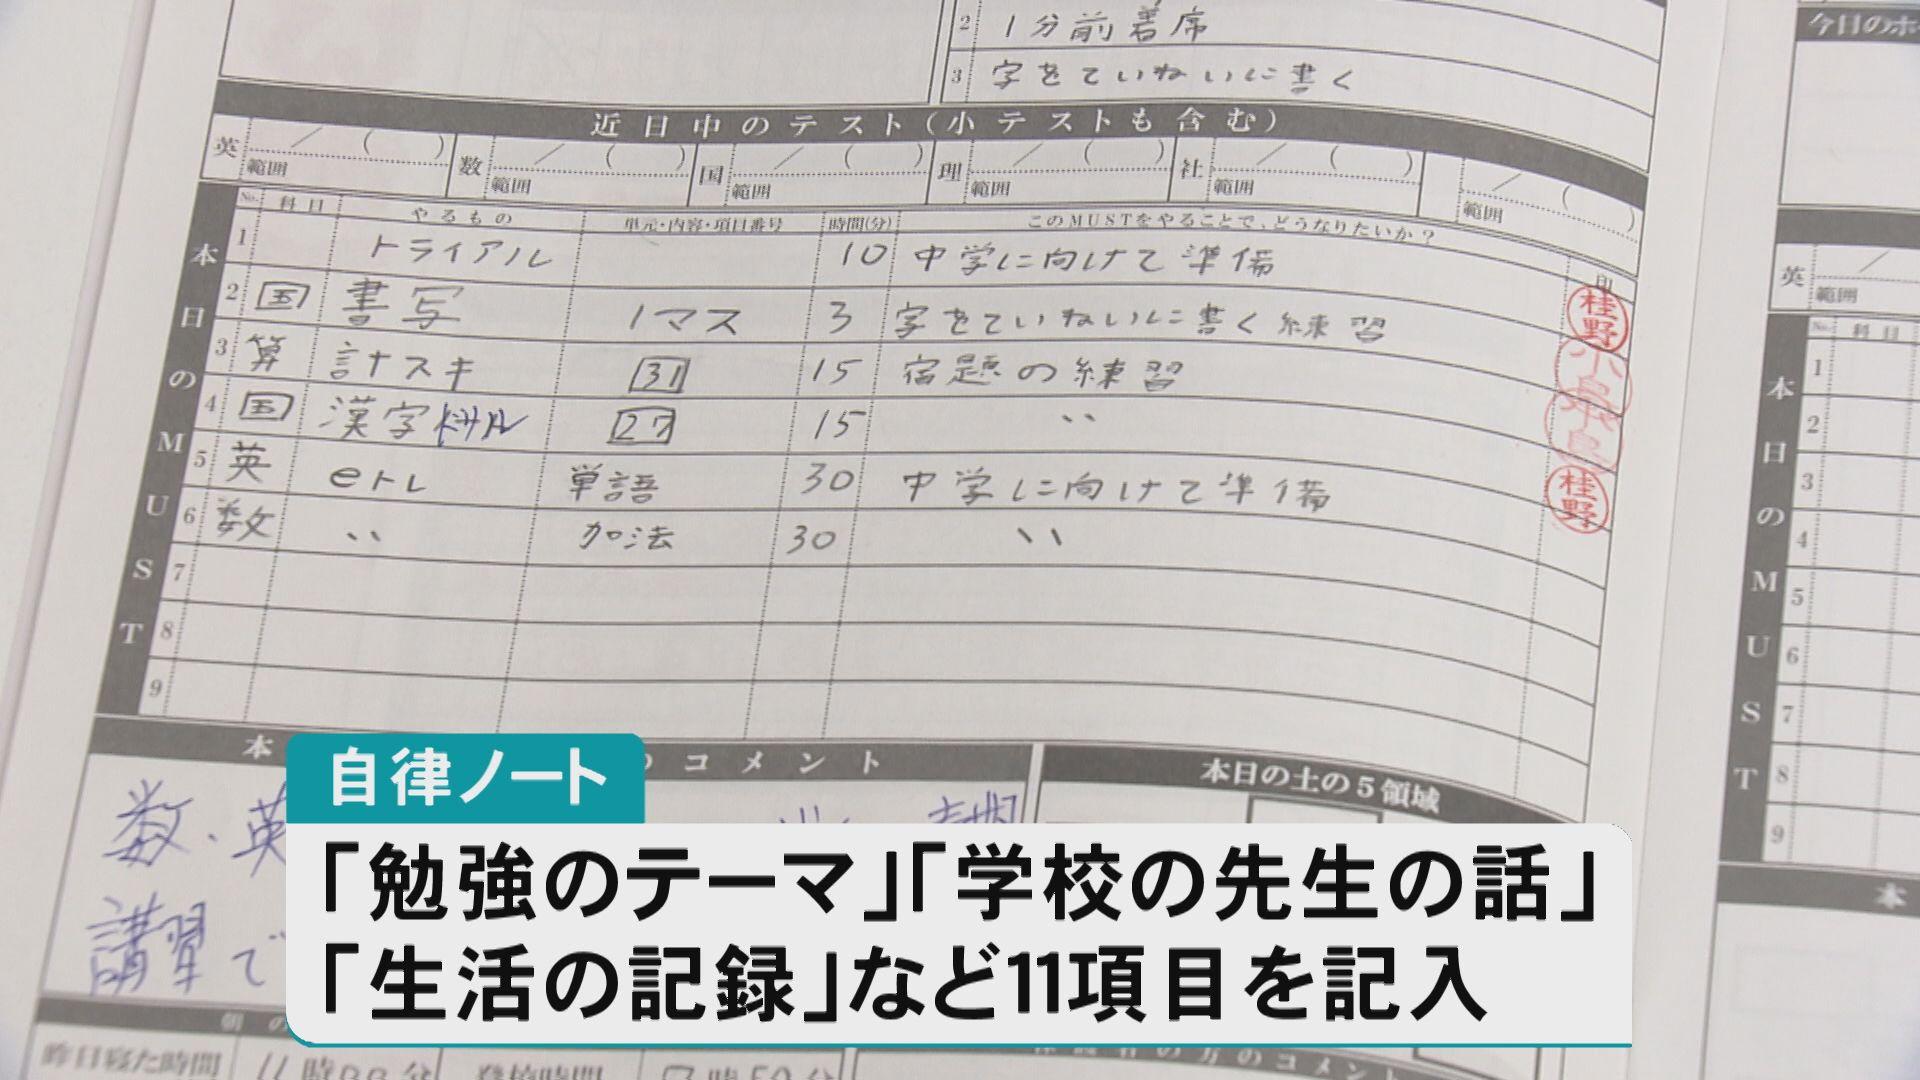 2 1分前着席
今日のホ
3 字をていねいに書く
近日中のテスト(小テストも含む)
英 / ( ) 数 / ( ) 国 / ( ) 理 / ( ) 社 / ( ) / ( )
範囲 範囲 範囲 範囲 範囲 範囲
No. 科目 やるもの 単元・内容・項目番号 時間(分) このMUSTをやることで、どうなりたいか? 印
本日のMUST
1 トライアル 10 中学に向けて準備
2 国 書写 1マス 3 字をていねいに書く練習 桂野
3 算 計ナスキ 31 15 宿題の練習
4 国 漢字ドリル 27 15 〃
5 英 eトレ 単語 30 中学に向けて準備 桂野
6 数 〃 加法 30 〃
7
8
9
英 /
範囲
No. 科目
本日のMUST
1
2
3
4
5
6
7
8
9
本
本 のコメント
本日の土の5領域
数・英
講習で
自律ノート
「勉強のテーマ」「学校の先生の話」
「生活の記録」など11項目を記入
昨日寝た時間 11時 分 登校時間 7時50分
の方のコメント